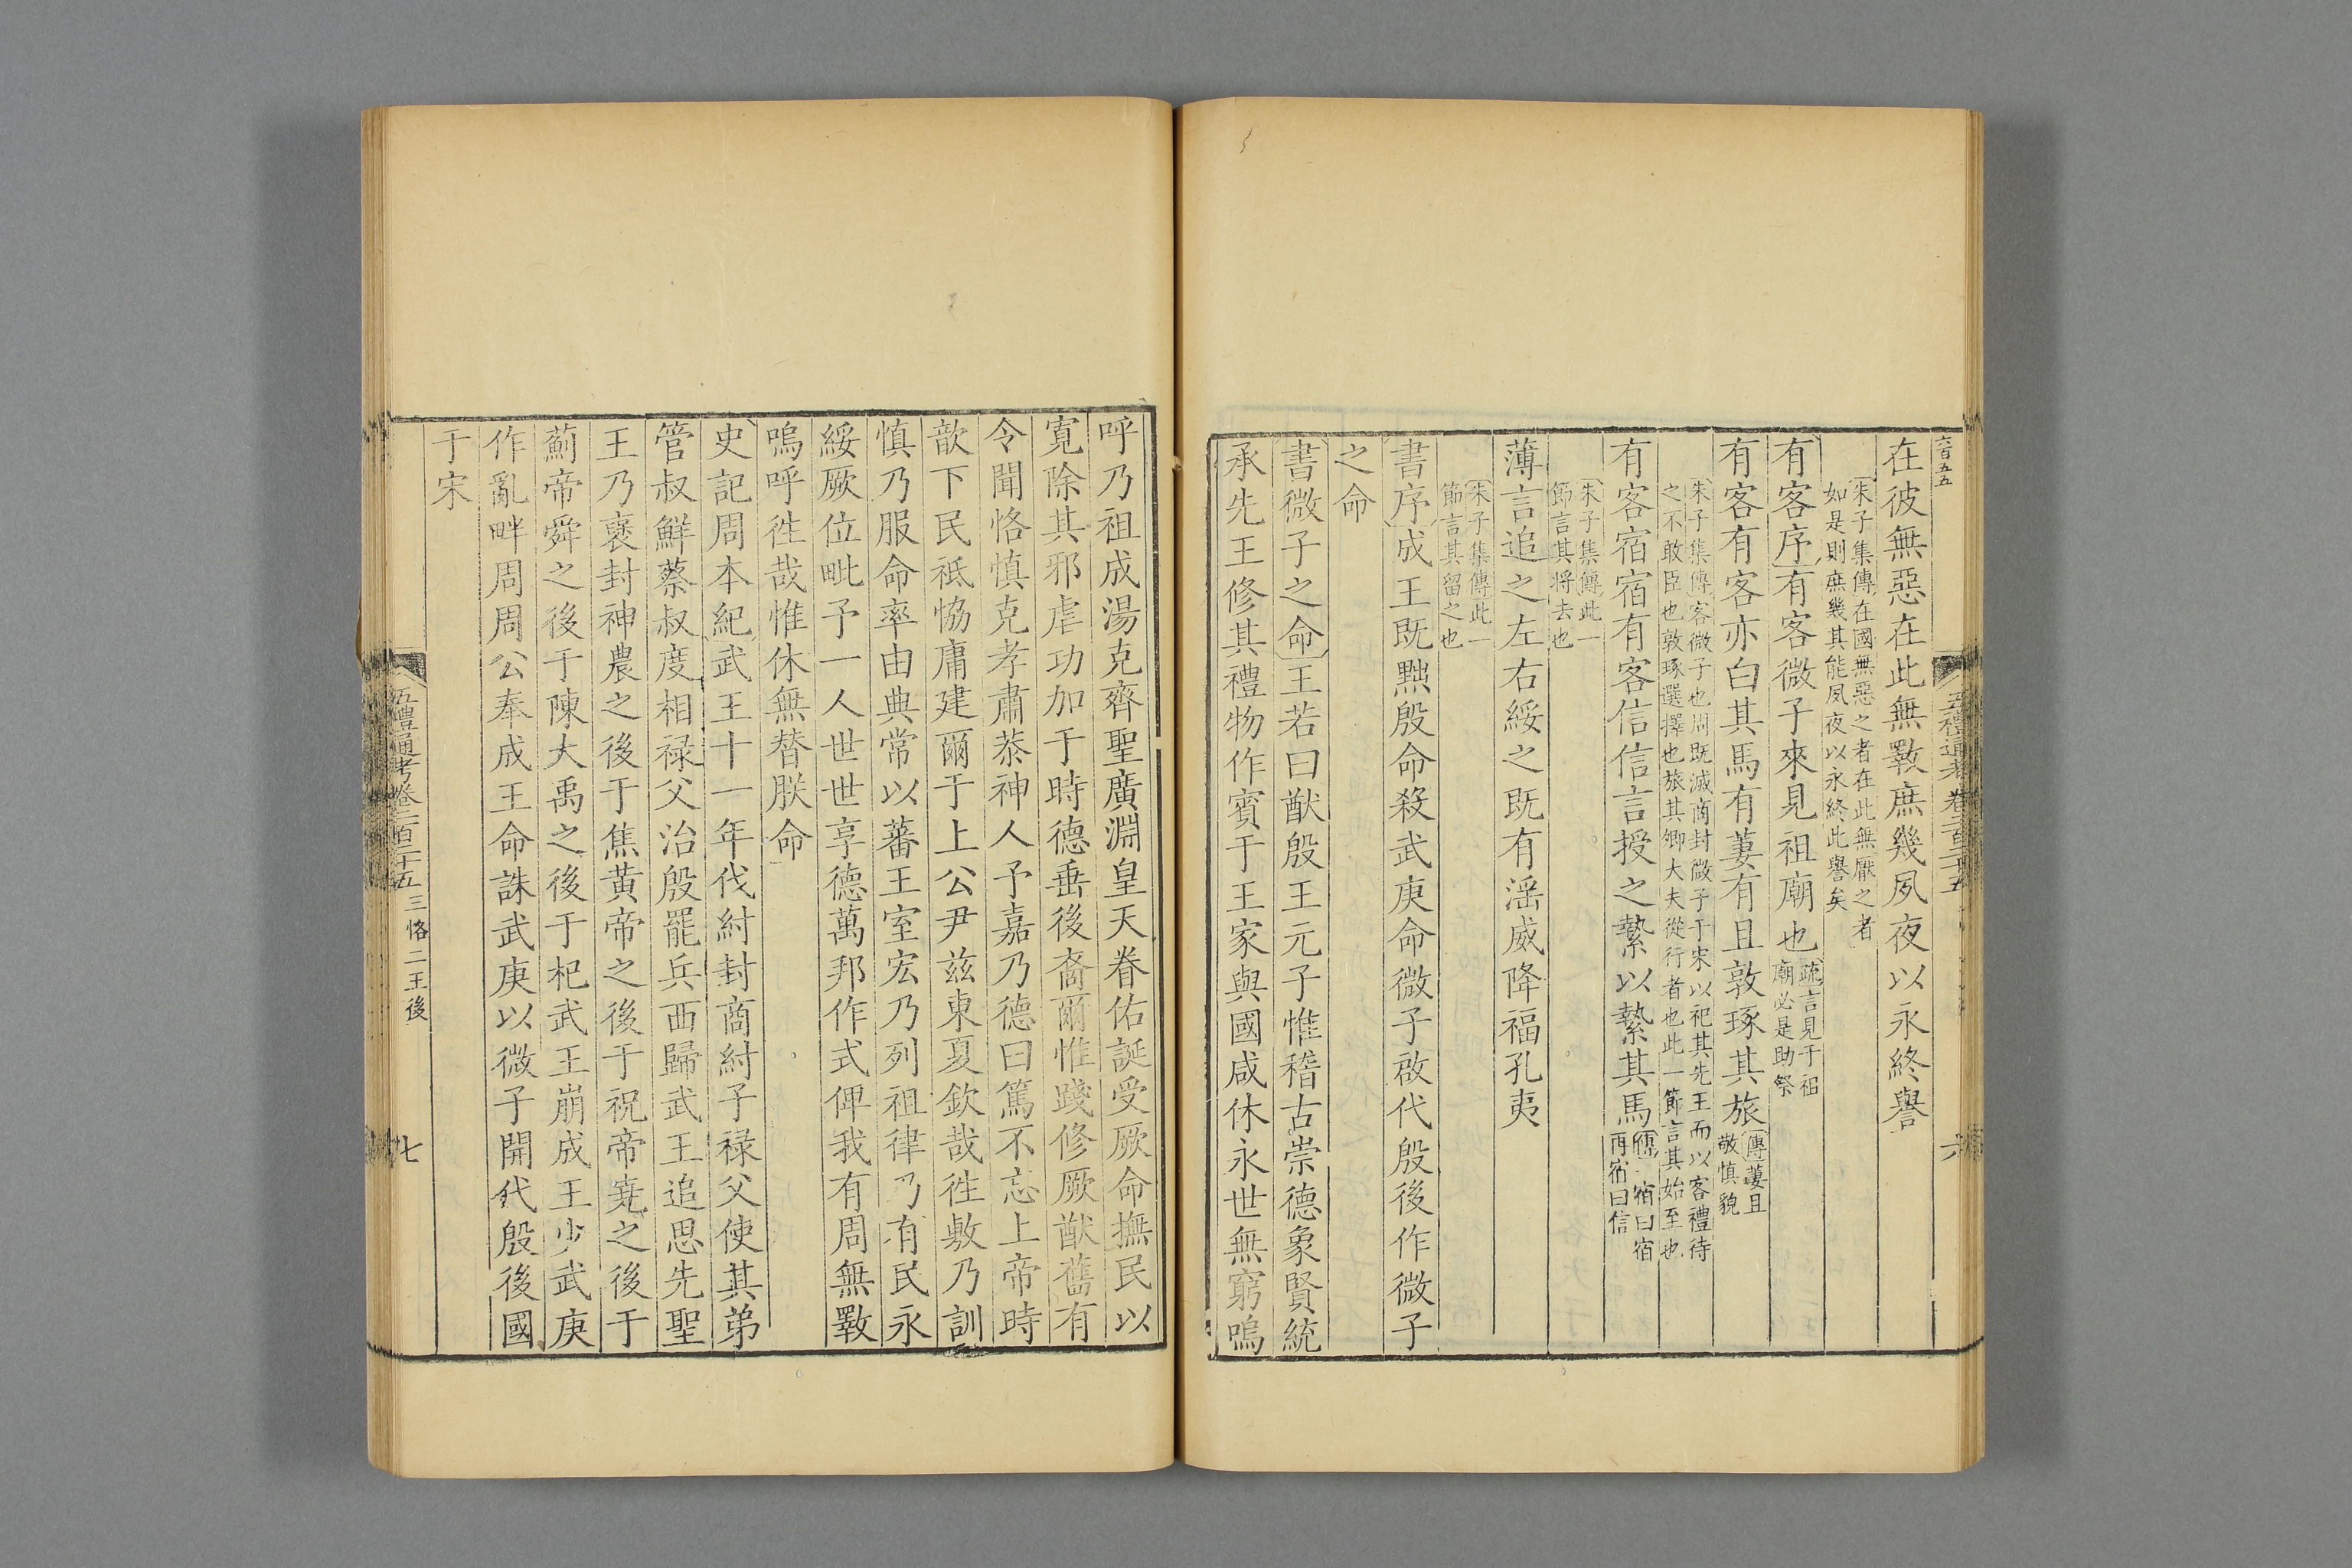 六百五五
五禮通考卷二百二十五
六
在彼無惡在此無斁庶幾夙夜以永終譽
朱子集傳在國無惡之者在此無厭之者
如是則庶幾其能夙夜以永終此譽矣
有客序有客微子來見祖廟也疏言見于祖
廟必是助祭
有客有客亦白其馬有萋有且敦琢其旅傳萋且
敬慎貌
朱子集傳客微子也周既滅商封微子于宋以祀其先王而以客禮待
之不敢臣也敦琢選擇也旅其卿大夫從行者也此一節言其始至也
有客宿宿有客信信言授之縶以縶其馬傳一宿曰宿
再宿曰信
朱子集傳此一
節言其將去也
薄言追之左右綏之既有淫威降福孔夷
朱子集傳此一
節言其留之也
書序成王既黜殷命殺武庚命微子啟代殷後作微子
之命
書微子之命王若曰猷殷王元子惟稽古崇德象賢統
承先王修其禮物作賓于王家與國咸休永世無窮嗚
呼乃祖成湯克齊聖廣淵皇天眷佑誕受厥命撫民以
寬除其邪虐功加于時德垂後裔爾惟踐修厥猷舊有
令聞恪慎克孝肅恭神人予嘉乃德曰篤不忘上帝時
歆下民祗協庸建爾于上公尹茲東夏欽哉徃敷乃訓
慎乃服命率由典常以蕃王室宏乃列祖律乃有民永
綏厥位毗予一人世世享德萬邦作式俾我有周無斁
嗚呼徃哉惟休無替朕命
史記周本紀武王十一年伐紂封商紂子祿父使其弟
管叔鮮蔡叔度相祿父治殷罷兵西歸武王追思先聖
王乃襃封神農之後于焦黃帝之後于祝帝堯之後于
薊帝舜之後于陳大禹之後于杞武王崩成王少武庚
作亂畔周周公奉成王命誅武庚以微子開代殷後國
于宋
五禮通考卷二百二十五
三恪二王後
七